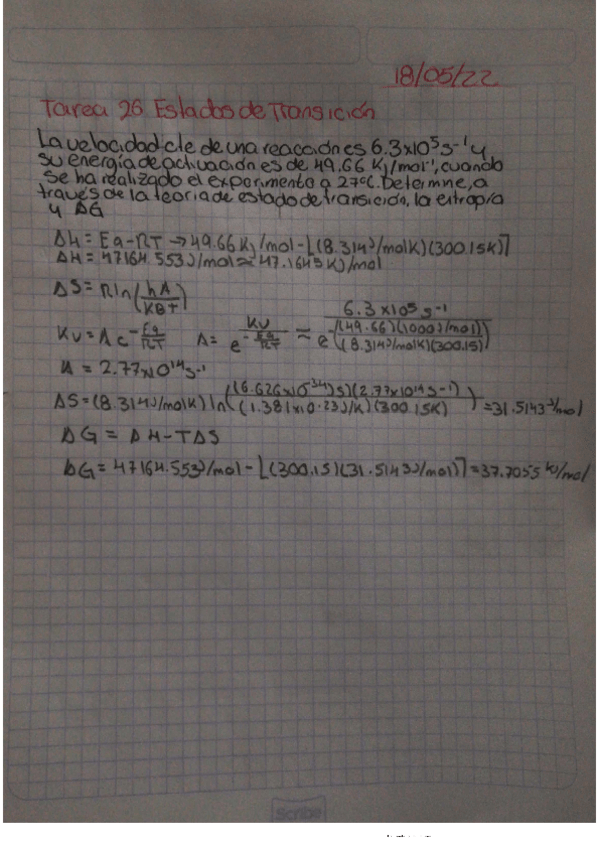 18/05/22
Tarea 26 Estados de Transición
La velocidad cte de una reacción es 6.3x10⁵s⁻¹ y
su energía de activación es de 49.66 KJ/mol⁻¹, cuando
se ha realizado el experimento a 27°C. Determine, a
través de la teoria de estado de transición, la entropía
y ΔG
ΔH = Ea-RT → 49.66 KJ/mol - [(8.314J/molK)(300.15K)]
ΔH = 47164.553J/mol ≈ 47.1645 KJ/mol
ΔS = R ln(hA/KBT)
Kv = A e^-Ea/RT A = Kv/e^-Ea/RT ≈ 6.3x10⁵s⁻¹/e^-((49.66)(1000J/mol))/(8.314J/molK)(300.15)
A = 2.77x10¹⁴s⁻¹
ΔS = (8.314J/molK) ln((6.626x10⁻³⁴Js)(2.77x10¹⁴s⁻¹)/(1.381x10⁻²³J/K)(300.15K)) = 31.5143 J/mol
ΔG = ΔH-TΔS
ΔG = 47164.553J/mol - [(300.15)(31.5143J/mol)] = 37.7055 KJ/mol
Scribe